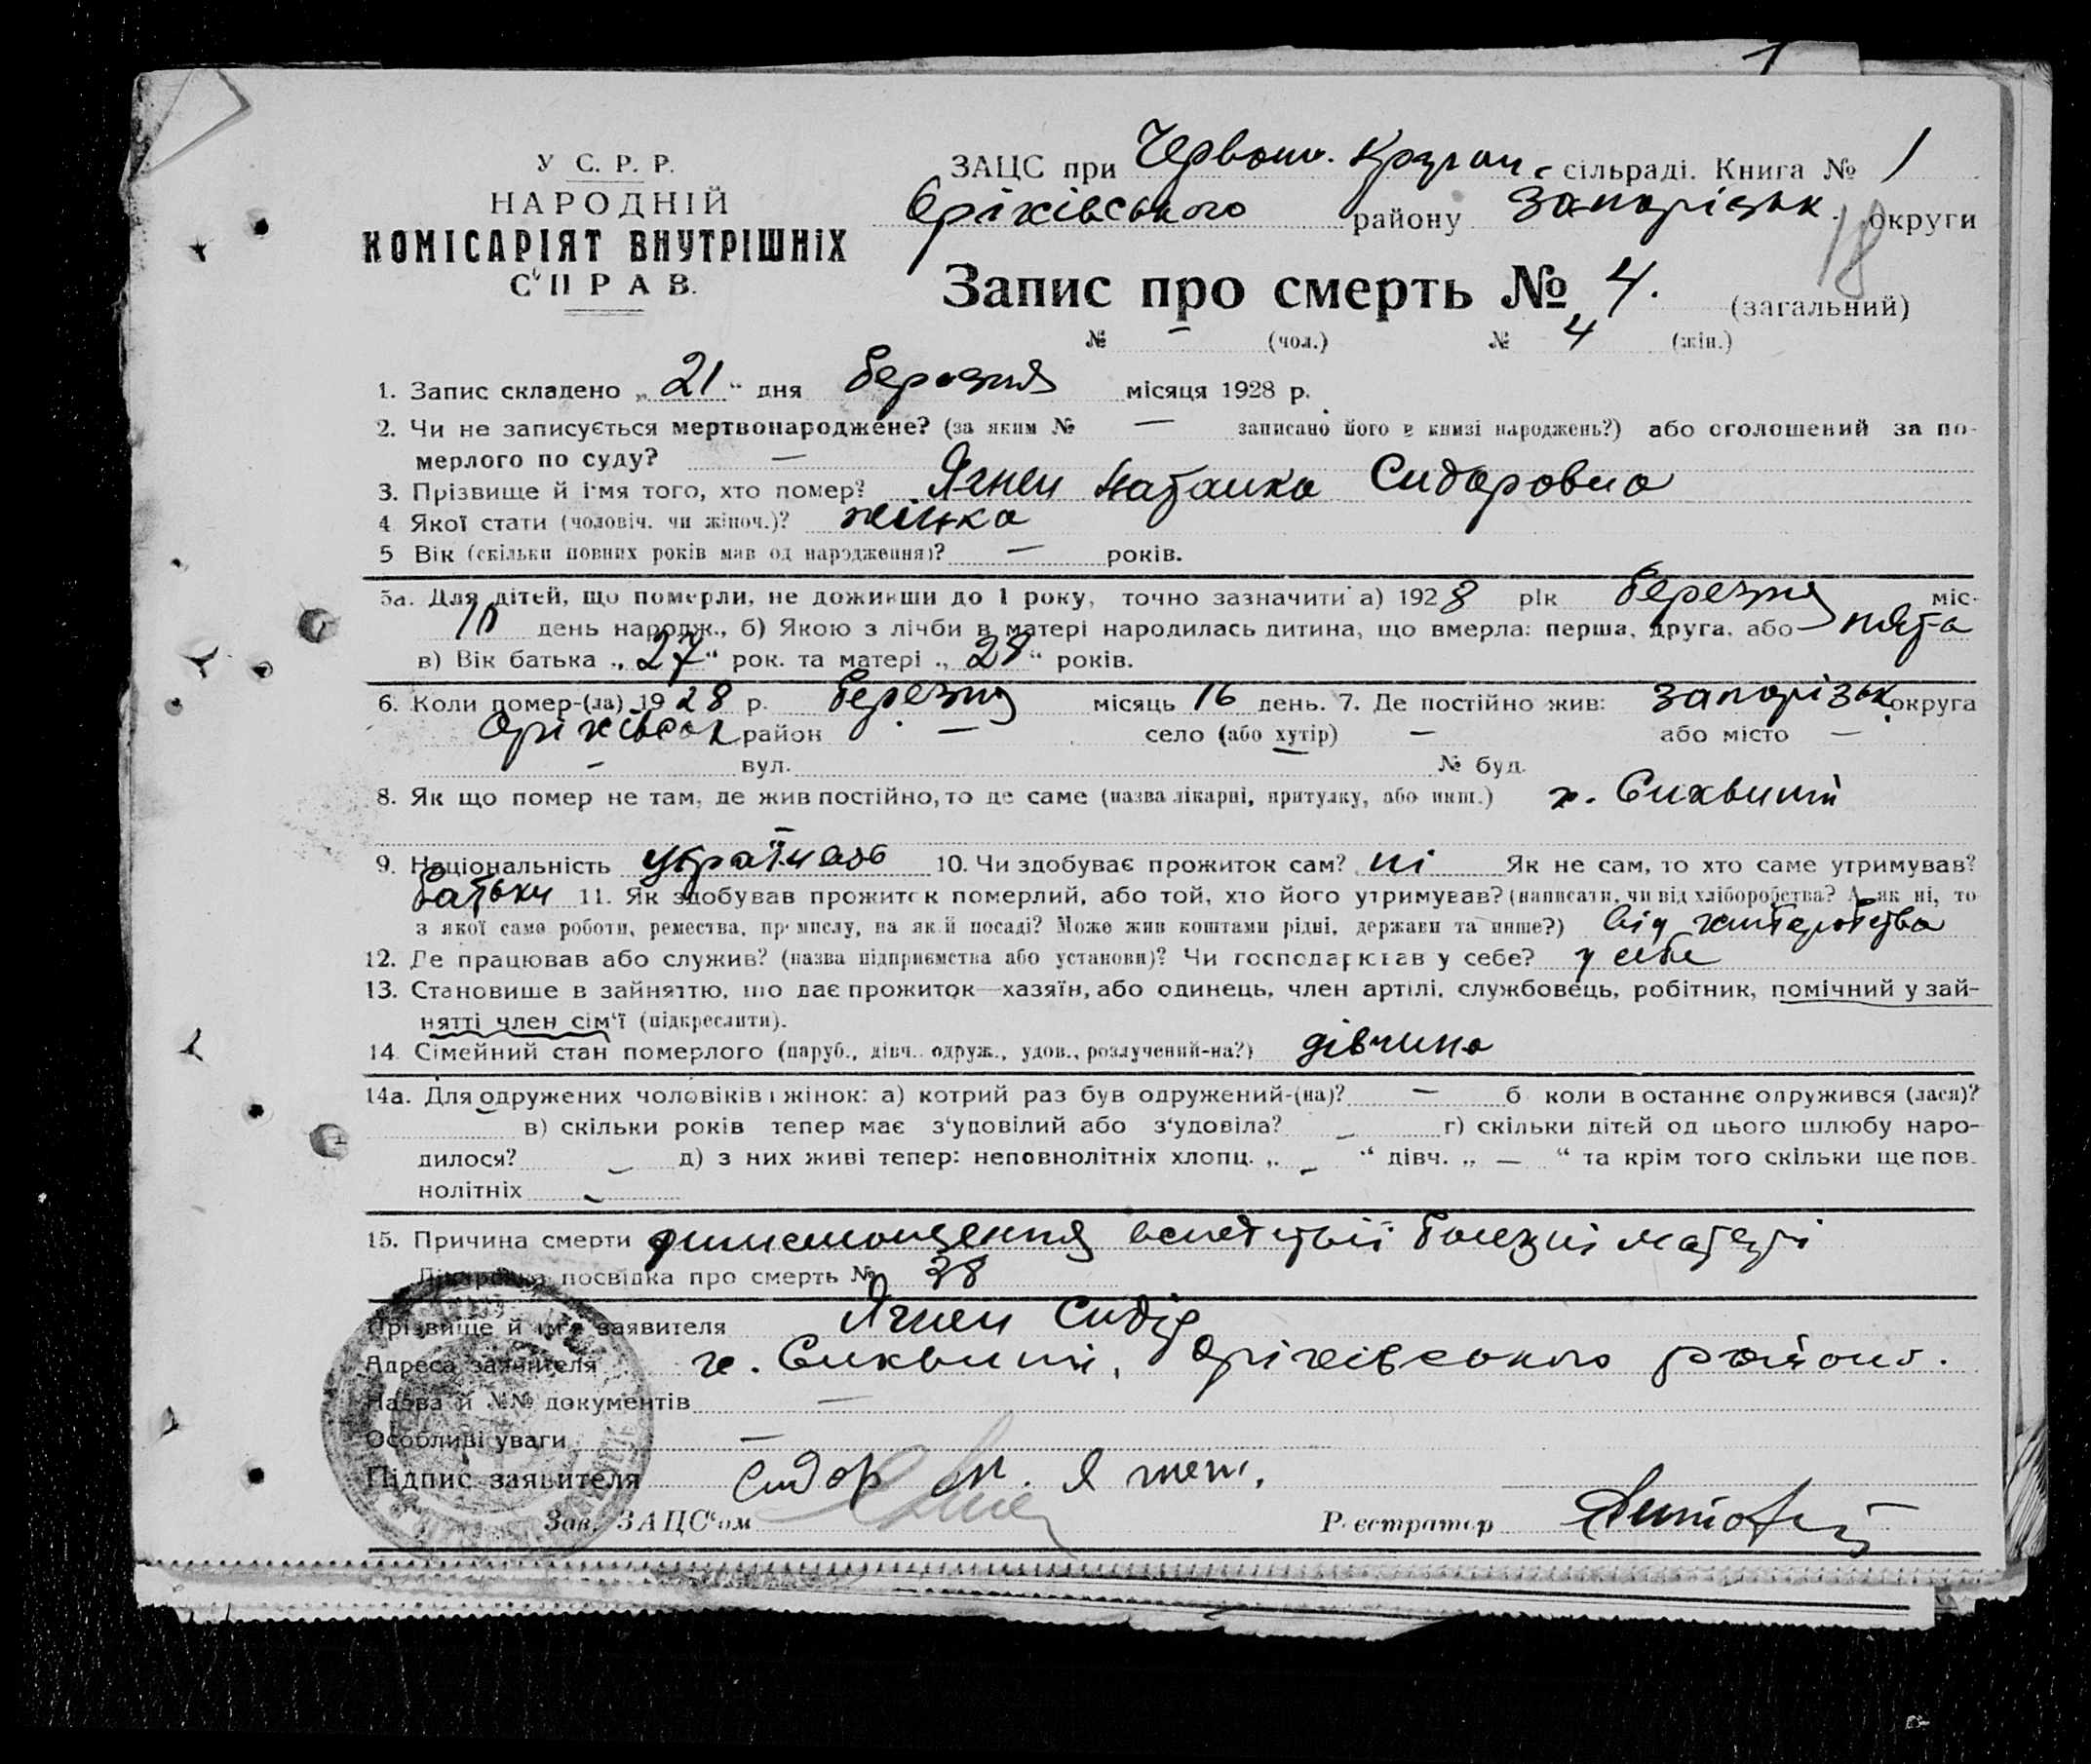 1
У С. Р. Р.
НАРОДНІЙ
КОМІСАРІЯТ ВНУТРІШНІХ
СПРАВ.
ЗАЦС при Червон. сільраді. Книга № 1
Оріхівського району Запорізьк. округи
18
Запис про смерть № 4. (загальний)
№ — (чол.) № 4 (жін.)
1. Запис складено „21“ дня березня місяця 1928 р.
2. Чи не записується мертвонароджене? (за яким № — записано його в книзі народжень?) або оголошений за по-
мерлого по суду? —
3. Прізвище й ім'я того, хто помер? Ягнен Наталка Сидоровна
4 Якої стати (чоловіч. чи жіноч.)? жінка
5 Вік (скільки повних років мав од народження)? — років.
5а. Для дітей, що померли, не доживши до 1 року, точно зазначити а) 1928 рік березня міс.
10 день народж., б) Якою з лічби в матері народилась дитина, що вмерла: перша, друга, або — пята
в) Вік батька „27“ рок. та матері „28“ років.
6. Коли помер-(ла) 1928 р. березня місяць 16 день. 7. Де постійно жив: Запорізьк. округа
Оріхівськ район — село (або хутір) — або місто —
- вул. № буд.
8. Як що помер не там, де жив постійно, то де саме (назва лікарні, притулку, або инш.) х.
9. Національність українськ 10. Чи здобуває прожиток сам? ні Як не сам, то хто саме утримував?
батьки 11. Як здобував прожиток померлий, або той, хто його утримував? (написати, чи від хліборобства? А як ні, то
з якої саме роботи, ремества, промислу, на якій посаді? Може жив коштами рідні, держави та инше?) від хліборобства
12. Де працював або служив? (назва підприємства або установи)? Чи господарював у себе? у себе
13. Становище в зайняттю, що дає прожиток—хазяїн, або одинець, член артілі, службовець, робітник, помічний у зай-
нятті член сім'ї (підкреслити).
14. Сімейний стан померлого (паруб., дівч. одруж., удов., розлучений-на?) дівчина
14а. Для одружених чоловіків і жінок: а) котрий раз був одружений-(на)? — б коли в останнє одружився (лася)?
в) скільки років тепер має з'удовілий або з'удовіла? — г) скільки дітей од цього шлюбу наро-
дилося? — д) з них живі тепер: неповнолітніх хлопц. „ — “ дівч. „ — “ та крім того скільки ще пов.
нолітніх —
15. Причина смерти болезні матері
Лікарська посвідка про смерть № 38
Прізвище й ім'я заявителя Ягнен Сидір
Адреса заявителя х. Оріхівського району.
Назва й №№ документів —
Особливі уваги —
Підпис заявителя Сидор М. Ягнен.
Зав. ЗАЦС'ом
Реєстратор